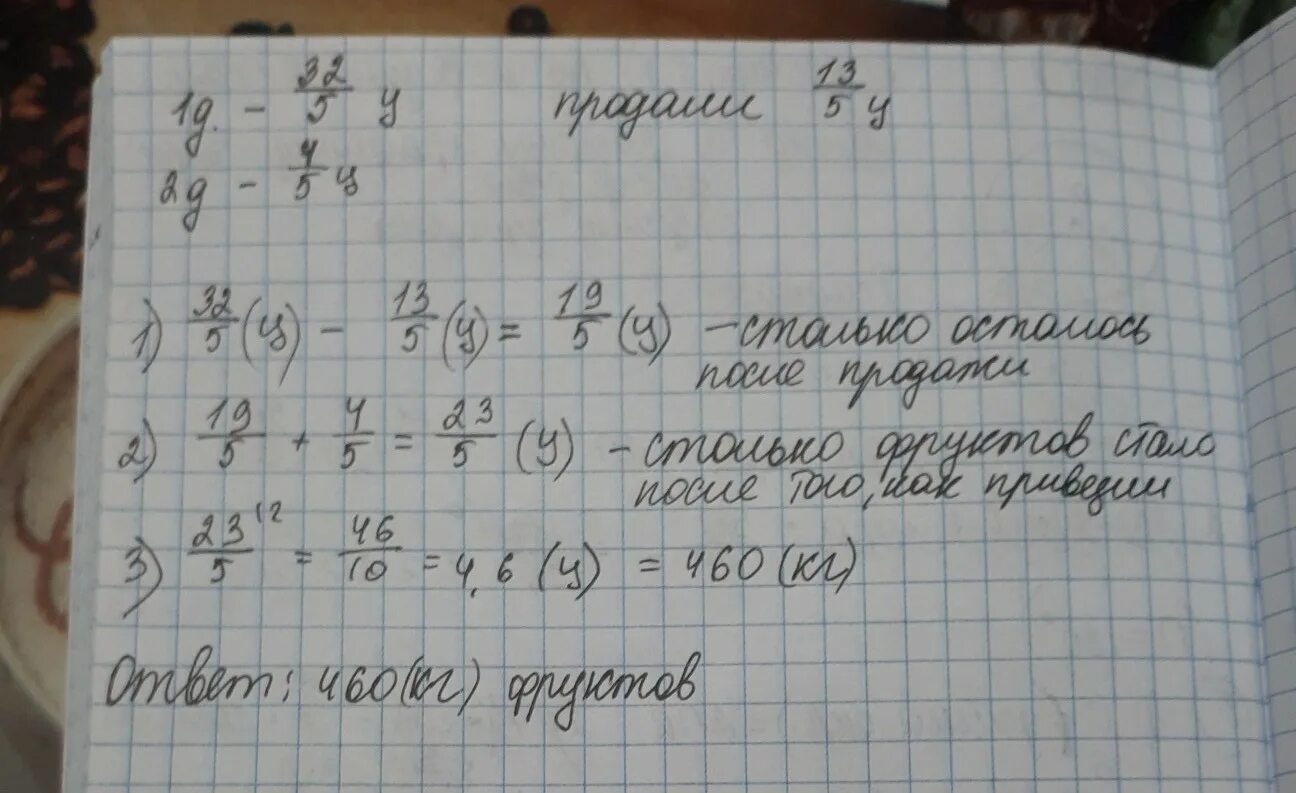 1д. - 32/5 ц продали 13/5 ц
2д - 4/5 ц
1) 32/5 (ц) - 13/5 (ц) = 19/5 (ц) - столько осталось
после продажи
2) 19/5 + 4/5 = 23/5 (ц) - столько фруктов стало
после того, как привезли
3) 23/5 ^(2 = 46/10 = 4,6 (ц) = 460 (кг)
Ответ: 460 (кг) фруктов